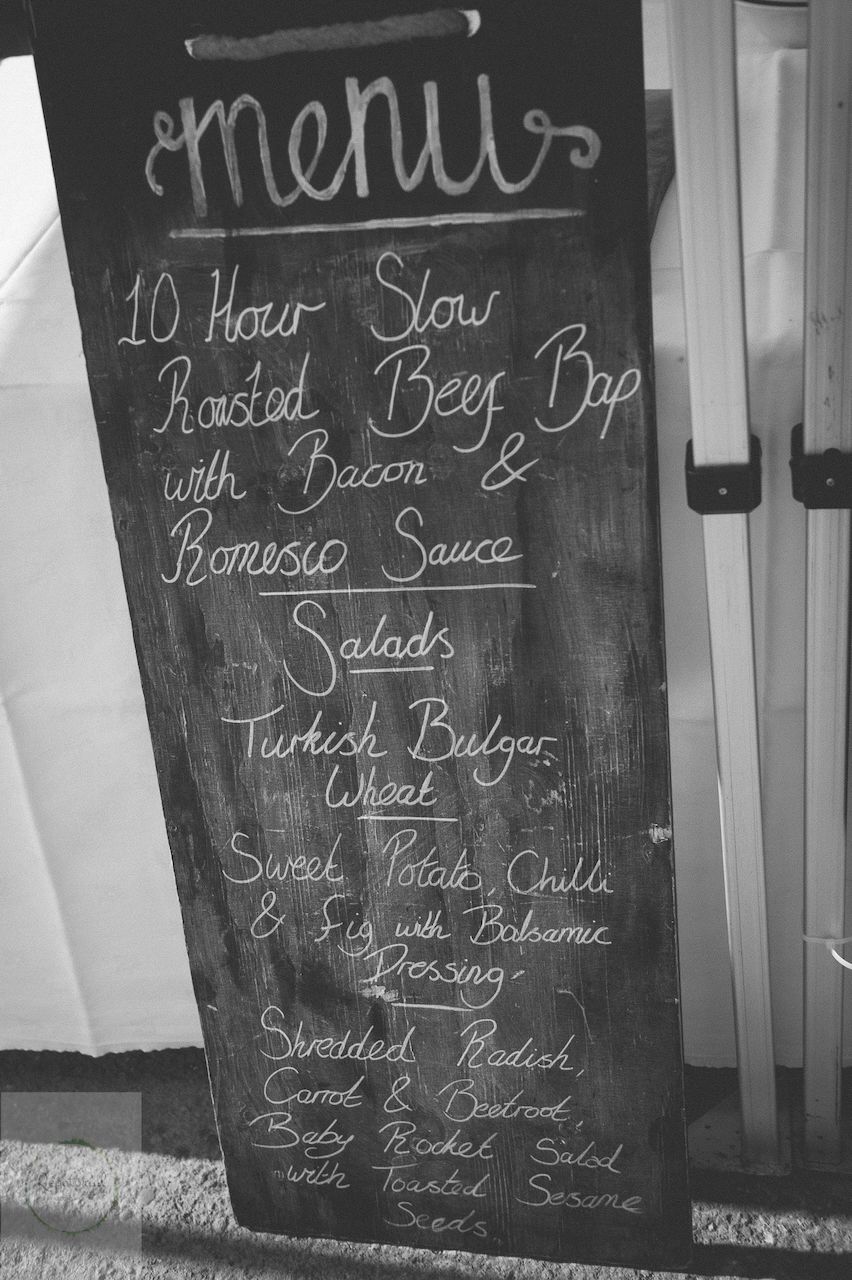 menu
10 Hour Slow
Roasted Beef Bap
with Bacon &
Romesco Sauce
Salads
Turkish Bulgar
Wheat
Sweet Potato, Chilli
& Fig with Balsamic
Dressing.
Shredded Radish,
Carrot & Beetroot,
Baby Rocket Salad
with Toasted Sesame
Seeds.